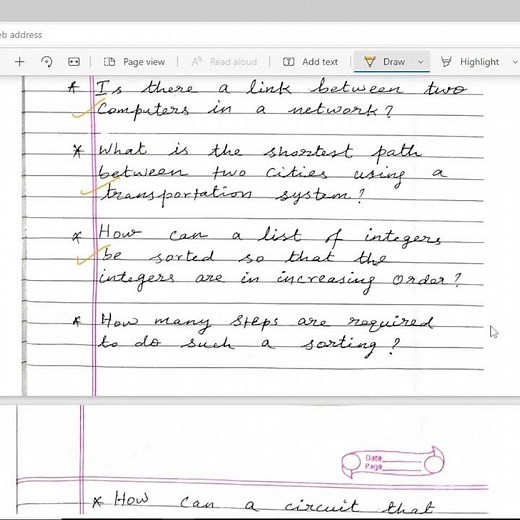 eb address
Page view
Read aloud
Add text
Draw
Highlight
* Is there a link between two
computers in a network?
* What is the shortest path
between two cities using a
transportation system?
* How can a list of integers
be sorted so that the
integers are in increasing order?
* How many steps are required
to do such a sorting?
Date
Page
* How can a circuit that